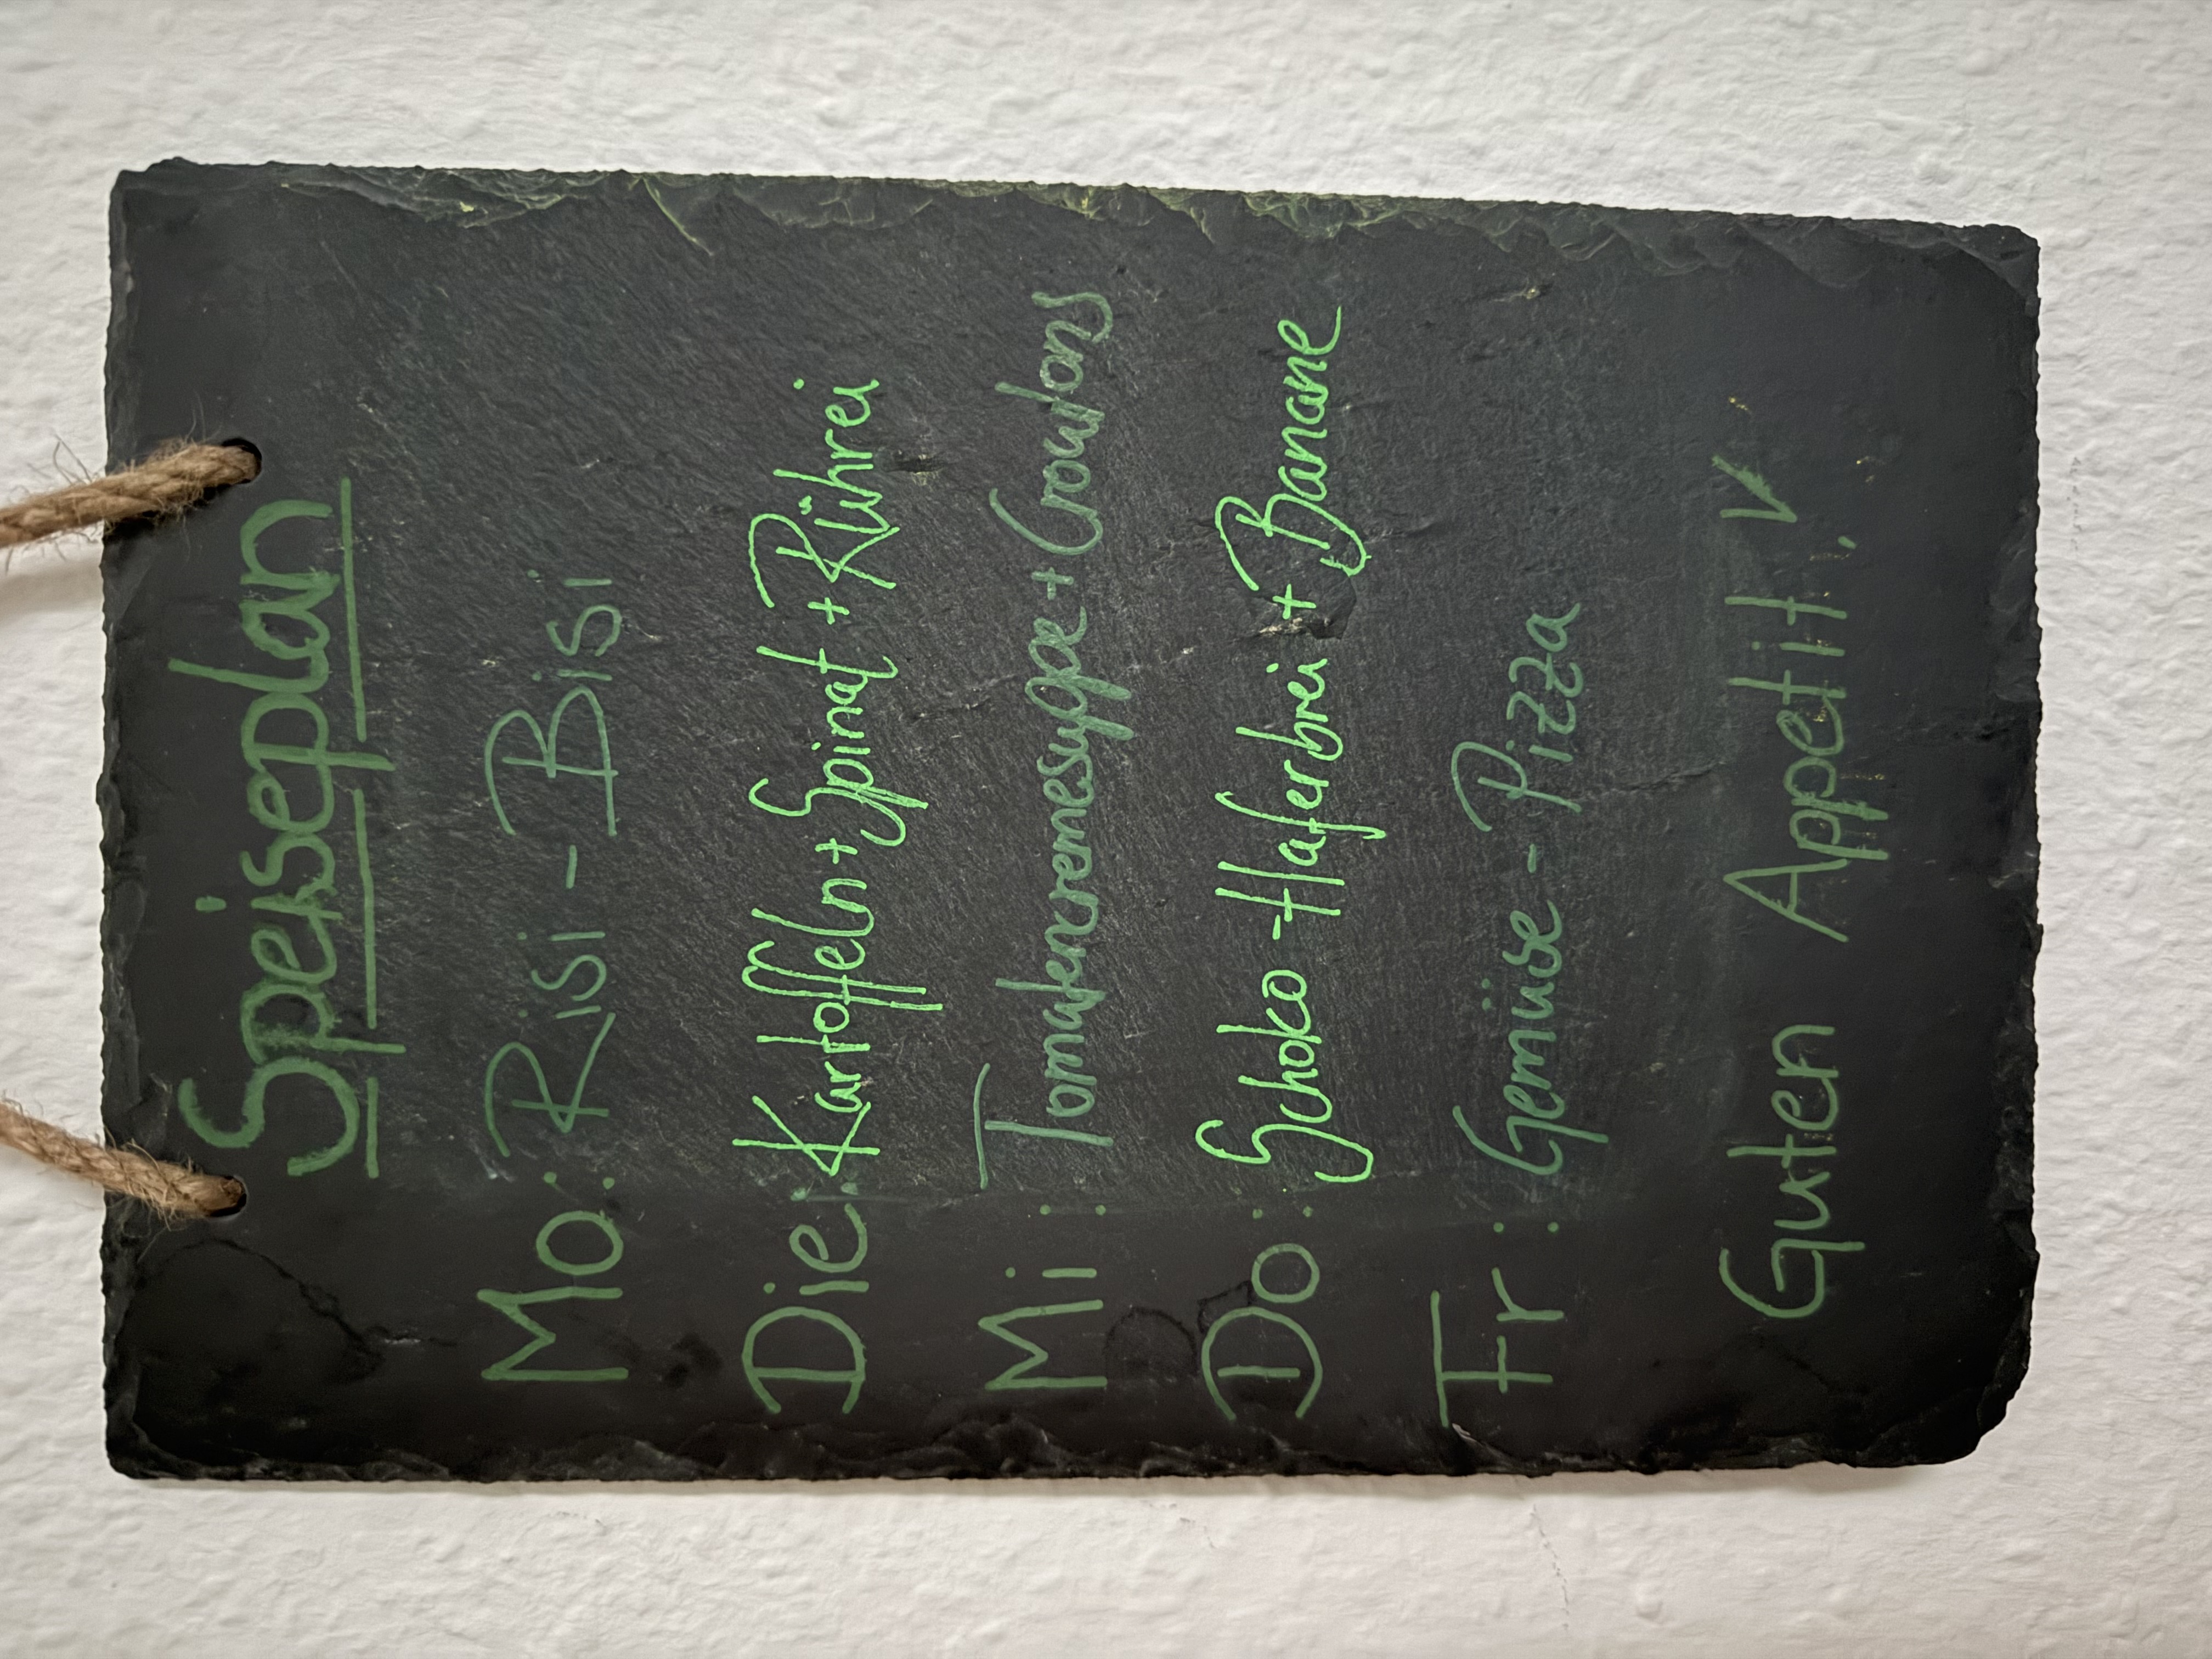 Speiseplan
Mo: Risi - Bisi
Die: Kartoffeln + Spinat + Rührei
Mi: Tomatencremesuppe + Croutons
Do: Schoko - Haferbrei + Banane
Fr: Gemüse - Pizza
Guten Appetit!